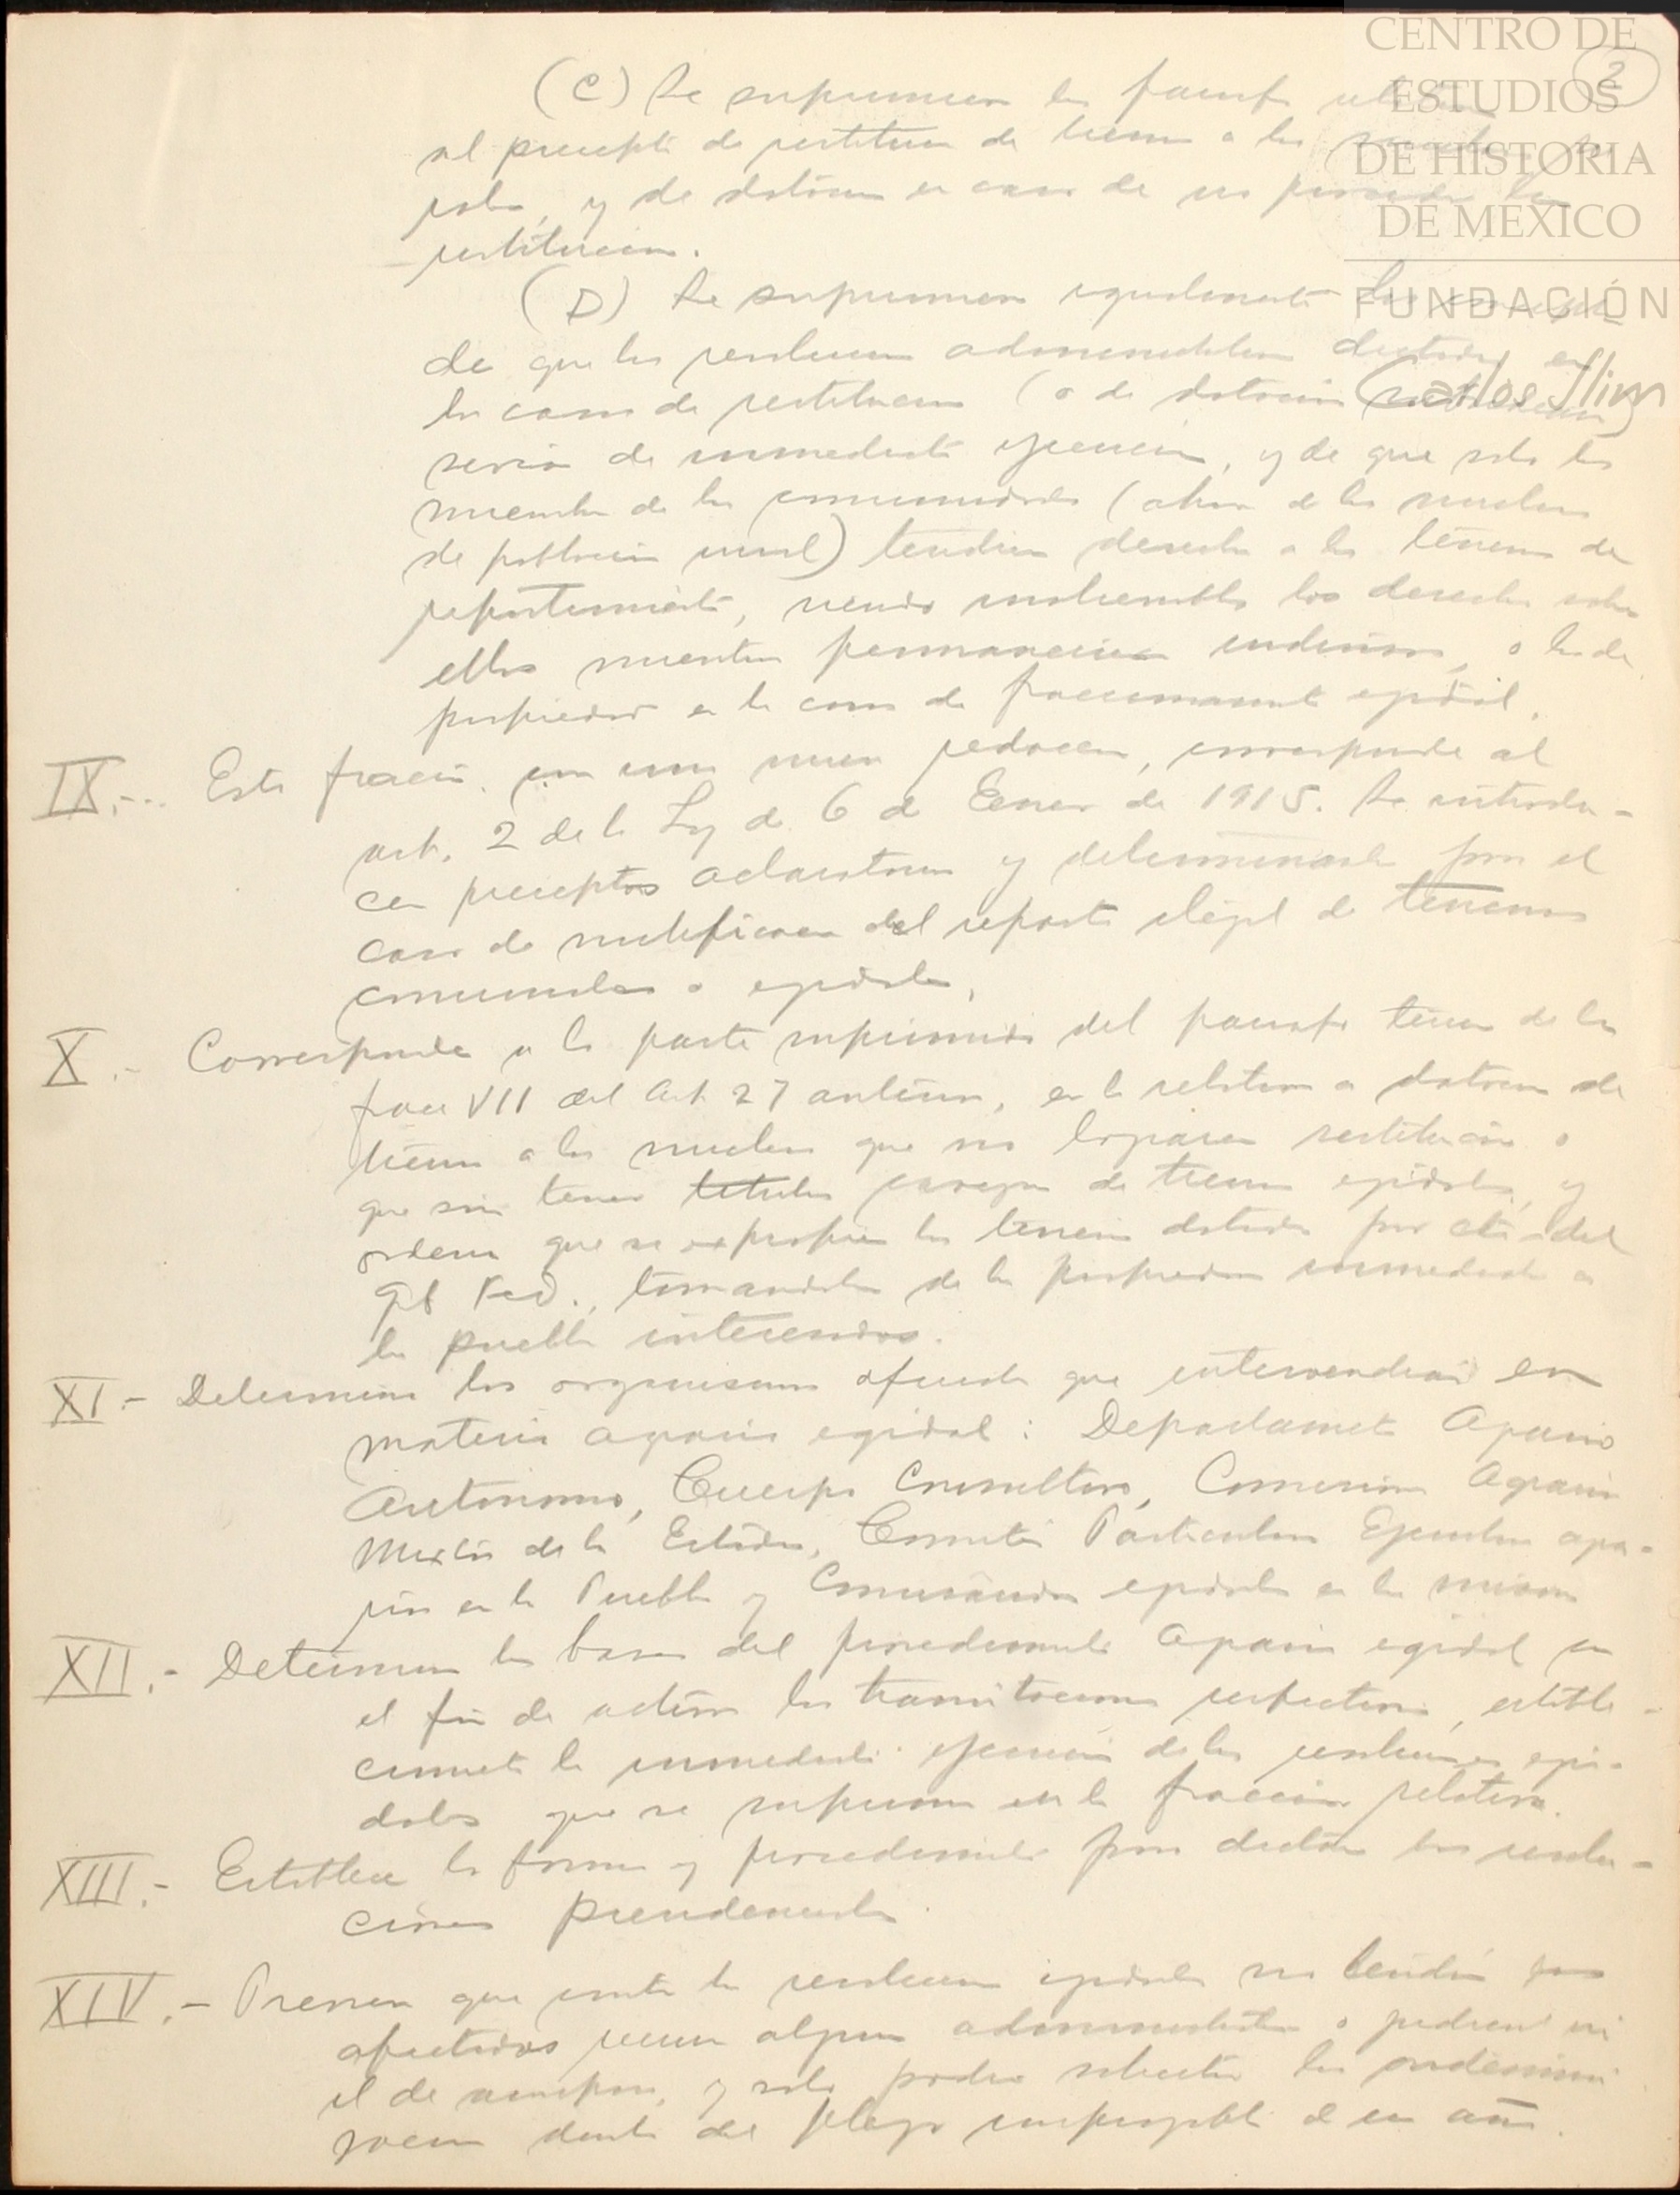 CENTRO DE
ESTUDIOS
DE HISTORIA
DE MEXICO
FUNDACIÓN
Carlos Slim
2
(C) Se suprimieron los
al precepto de restitución de tierras a los
y de dotación en caso de no proceder la
restitución.
(D) Se suprimieron igualmente
de que las resoluciones administrativas dictadas en
los casos de restitución (o de dotación
serían de inmediata ejecución, y de que solo los
miembros de las comunidades (ahora de los nucleos
de población rural) tendrían derecho a los terrenos de
repartimiento, siendo los derechos sobre
ellos mientras permanecieran indivisos, o los de
propiedad en los casos de fraccionamiento ejidal.
IX.- Esta fracción, con una nueva redacción, corresponde al
art. 2 de la Ley de 6 de Enero de 1915. Se introdu-
cen preceptos aclaratorios y para el
caso de nulificación del reparto ilegal de terrenos
comunales o ejidales.
X.- Corresponde a la parte suprimida del parrafo tercero de la
frac VII del Art 27 anterior, en lo relativo a dotación de
tierras a los nucleos que no lograren restitución o
que sin tener titulos carezcan de tierras ejidales, y
ordena que se expropien los terrenos dotados por cta del
Gob Fed., tomandolos de las propiedades inmediatas a
los pueblos interesados.
XI.- Determina los organismos oficiales que intervendrán en
materia agraria ejidal: Departamento Agrario
Autónomo, Cuerpo Consultivo, Comisiones Agrarias
Mixtas de los Estados, Comités Particulares Ejecutivos agra-
rios en los Pueblos y Comisariados ejidales en los mismos
XII.- Determina las bases del procedimiento Agrario ejidal con
el fin de activar las tramitaciones respectivas,
la inmediata ejecución de las resoluciones eji-
dales que se suprimen en la fracción relativa.
XIII.- Establece la forma y procedimiento para dictar las resolu-
ciones presidenciales.
XIV.- Previene que contra las resoluciones ejidales no tendrán
afectados recurso alguno administrativo o judicial ni
el de amparo, y solo podrán solicitar las indemni
zacion dentro del plazo improrrogable de un año.